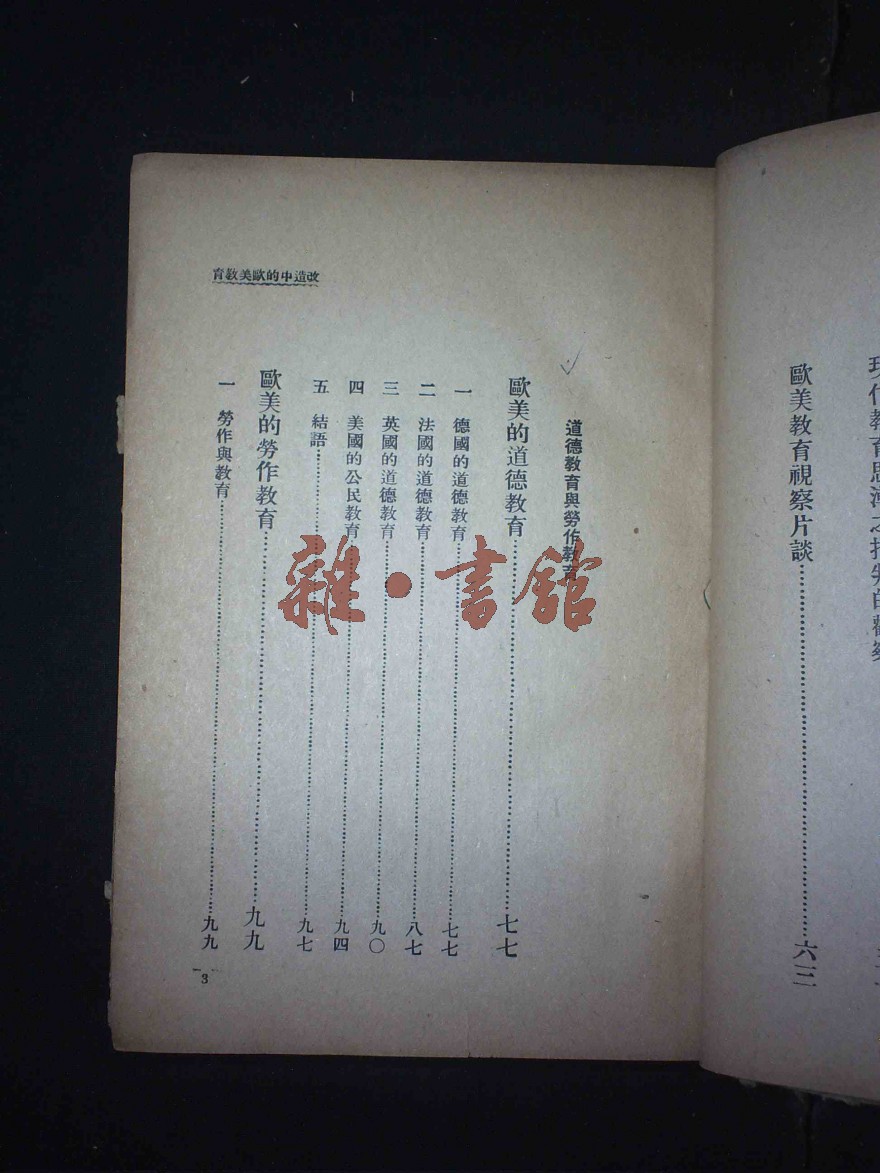 歐美教育視察片談……六三
改造中的歐美教育
道德教育與勞作教育
歐美的道德教育……七七
一 德國的道德教育……七七
二 法國的道德教育……八七
三 英國的道德教育……九〇
四 美國的公民教育……九四
五 結語……九七
歐美的勞作教育……九九
一 勞作與教育……九九
3
雜·書館